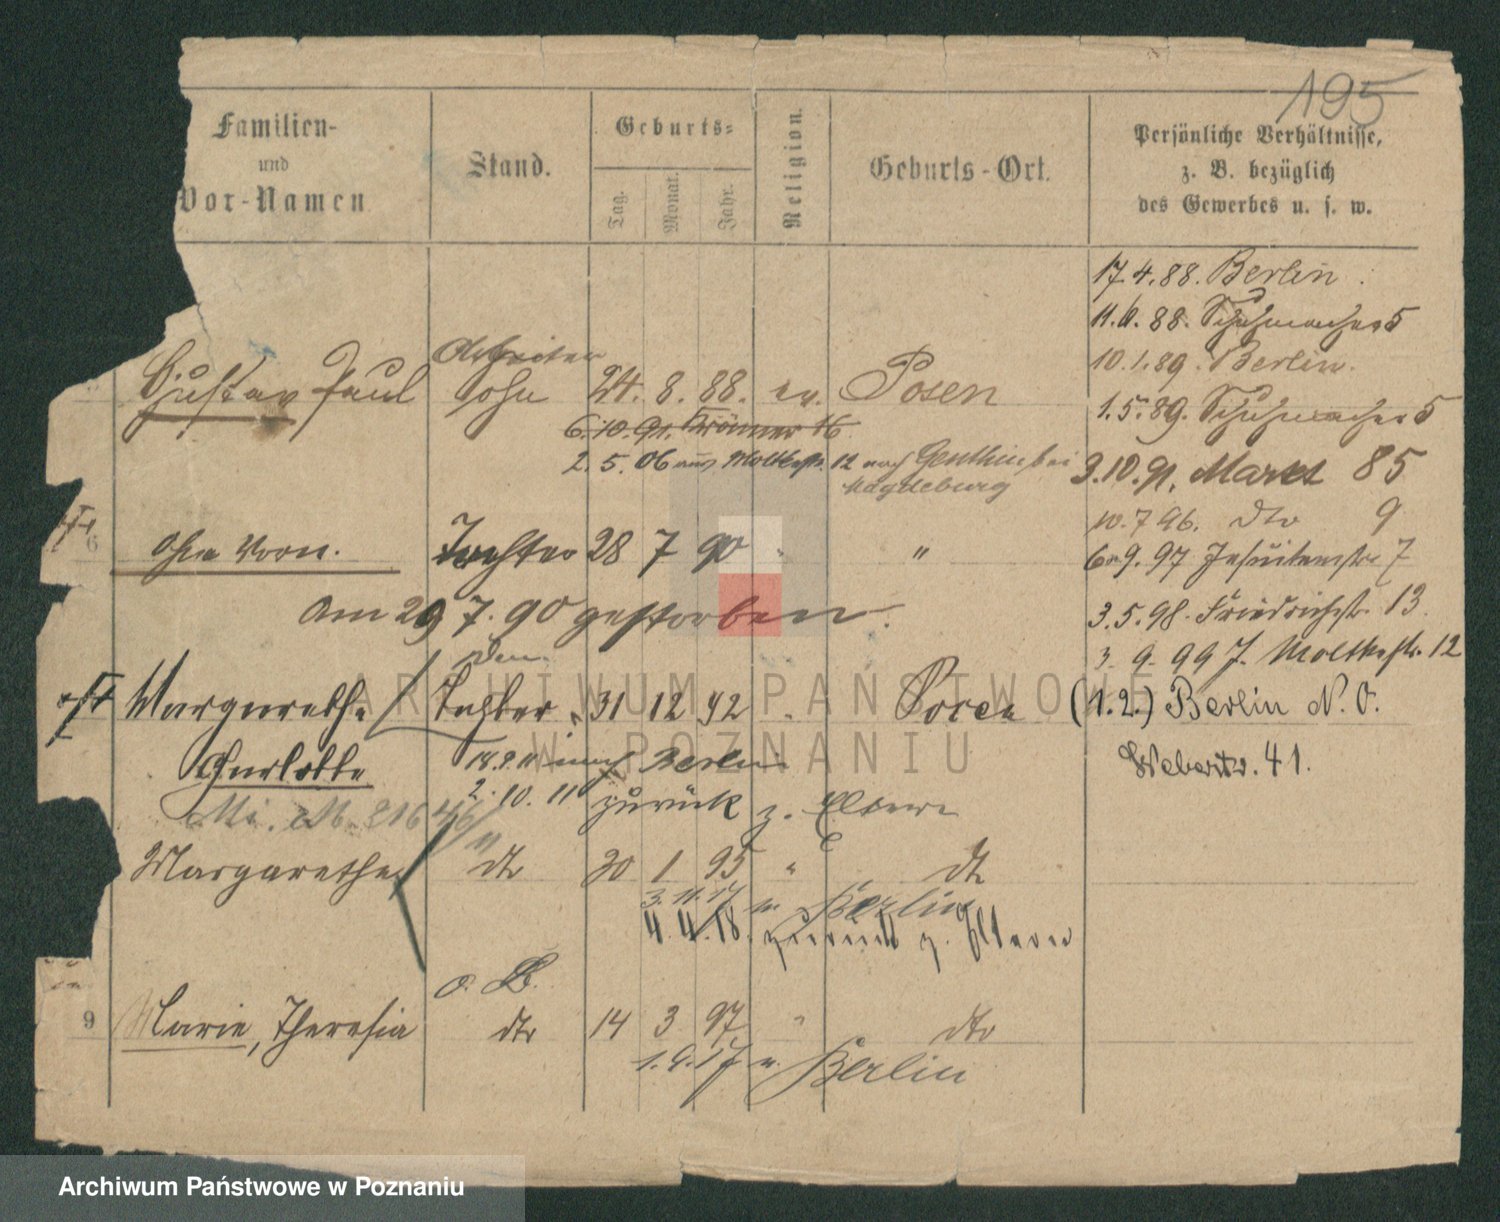 195
Familien-
und
Vor-Namen
Stand.
Geburts-
Tag.
Monat.
Jahr.
Religion.
Geburts-Ort.
Persönliche Verhältnisse,
z. B. bezüglich
des Gewerbes u. s. w.
17.4.88. Berlin
11.6.88. Schuhmacher 5
10.1.89. Berlin.
1.5.89. Schuhmacher 5
3.10.91. Markt 85
10.7.96. dto 9
6.9.97 Jesuitenstr 7
3.5.98. Friedrichstr. 13
3.9.99 Moltkestr. 12
(1.2.) Berlin N.O.
Weberstr. 41.
Gustav Paul Arbeiter sohn 24. 8. 88. ev. Posen
6.10.91. Krämer 16
2.5.06 aus Moltkestr. 12 nach Genthin bei
Magdeburg
6 ohne Vorn. Tochter 28 7 90 "
am 29 7. 90 gestorben.
Margarethe Tochter 31 12 92 " Posen
Charlotte
18.9.11 nach Berlin
2.10.11 zurück z. Eltern
Margarethe dto 30 1 95 " dto
3.11.17 n. Berlin
4.4.18. zurück z. Eltern
9 Marie, Theresia dto 14 3 97 " dto
1.9.17 n. Berlin
ARCHIWUM PAŃSTWOWE
W POZNANIU
Archiwum Państwowe w Poznaniu